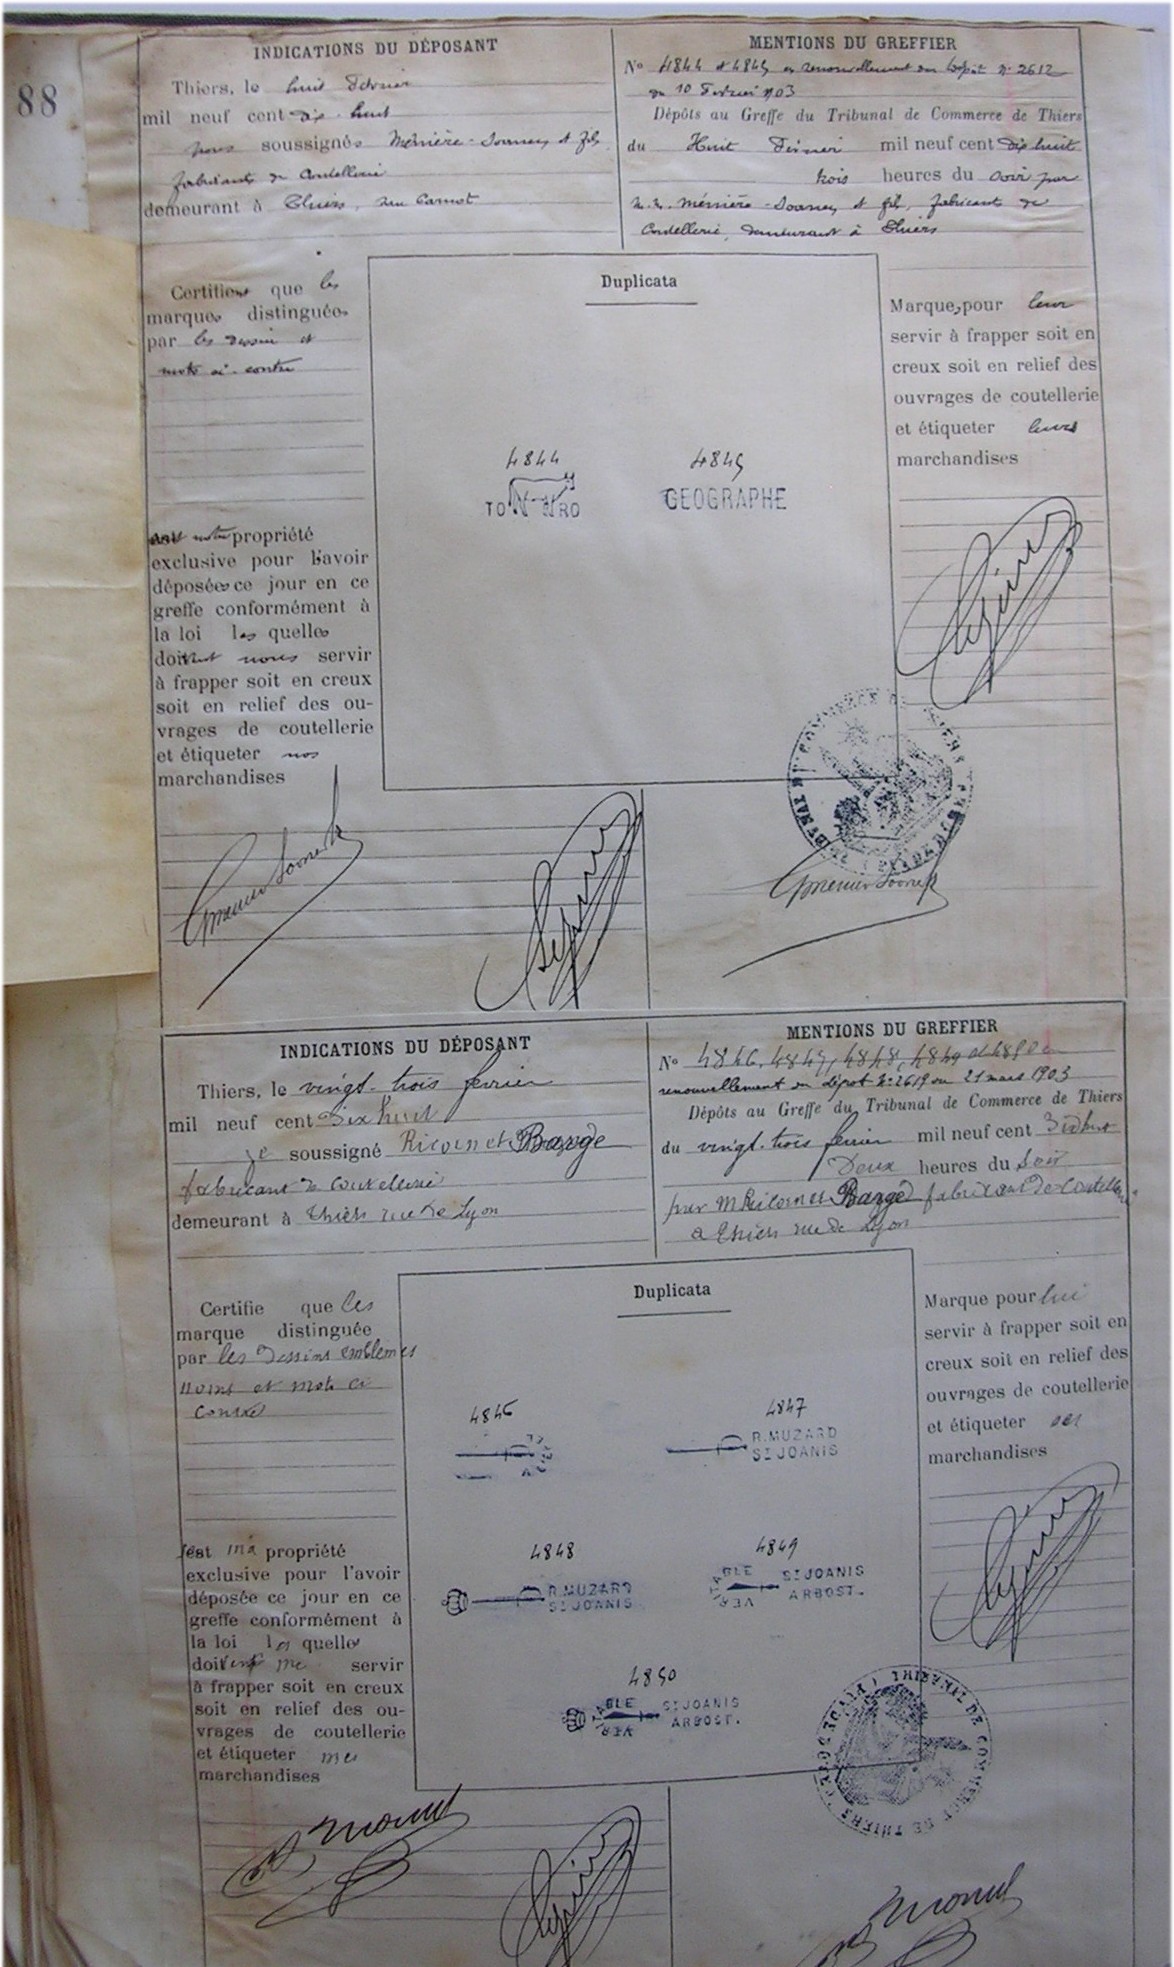 88
INDICATIONS DU DÉPOSANT
Thiers, le huit Février
mil neuf cent dix-huit
nous soussignés Ménière-Joanny et fils
fabricants de Coutellerie
demeurant à Thiers, rue Carnot
MENTIONS DU GREFFIER
No 4844 et 4845 en renouvellement du dépôt no 2612
du 10 Février 1903
Dépôts au Greffe du Tribunal de Commerce de Thiers
du Huit Février mil neuf cent dix huit
trois heures du soir par
M.M. Ménière-Joanny et fils, fabricants de
Coutellerie, demeurant à Thiers
Certifions que les
marques distinguées
par les dessin et
mots ci-contre
sont notre propriété
exclusive pour l'avoir
déposées ce jour en ce
greffe conformément à
la loi les quelles
doivent nous servir
à frapper soit en creux
soit en relief des ou-
vrages de coutellerie
et étiqueter nos
marchandises
Duplicata
4844
TO RO
4845
GEOGRAPHE
Marques pour leur
servir à frapper soit en
creux soit en relief des
ouvrages de coutellerie
et étiqueter leurs
marchandises
INDICATIONS DU DÉPOSANT
Thiers, le vingt-trois février
mil neuf cent dix huit
je soussigné Ricornet Barge
fabricant de Coutellerie
demeurant à Thiers rue de Lyon
MENTIONS DU GREFFIER
No 4846, 4847, 4848, 4849 et 4850 en
renouvellement du dépôt No 2619 du 21 mars 1903
Dépôts au Greffe du Tribunal de Commerce de Thiers
du vingt-trois février mil neuf cent dix huit
Deux heures du soir
par M Ricornet Barge fabricant de Coutellerie
a Thiers rue de Lyon
Certifie que les
marque distinguée
par les dessins emblemes
noms et mots ci
contre
est ma propriété
exclusive pour l'avoir
déposée ce jour en ce
greffe conformément à
la loi les quelles
doivent me servir
à frapper soit en creux
soit en relief des ou-
vrages de coutellerie
et étiqueter mes
marchandises
Duplicata
4846
4847
R.MUZARD
ST JOANIS
4848
R.MUZARD
ST JOANIS
4849
VERITABLE
ST JOANIS
ARBOST.
4850
VERITABLE
ST JOANIS
ARBOST.
Marque pour lui
servir à frapper soit en
creux soit en relief des
ouvrages de coutellerie
et étiqueter ses
marchandises
TRIBUNAL DE COMMERCE DE THIERS (PUY DE DOME)